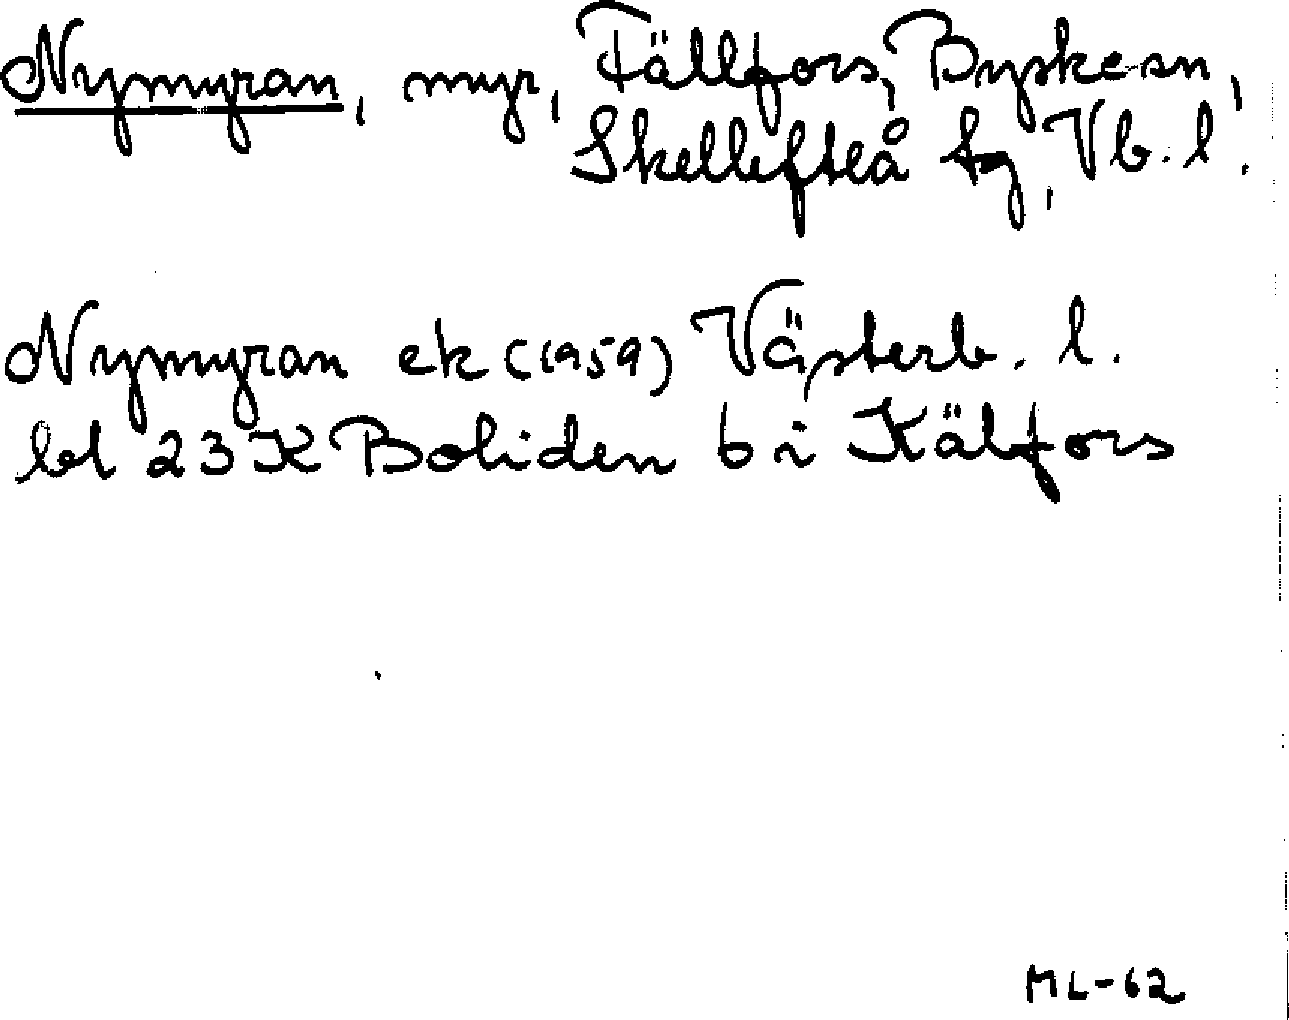 Nymyran, myr, Fällfors, Byske sn,
Skellefteå tg, Vb. l.
Nymyran ek (1959) Västerb. l.
bl 23 K Boliden b i Kälfors
ML-62